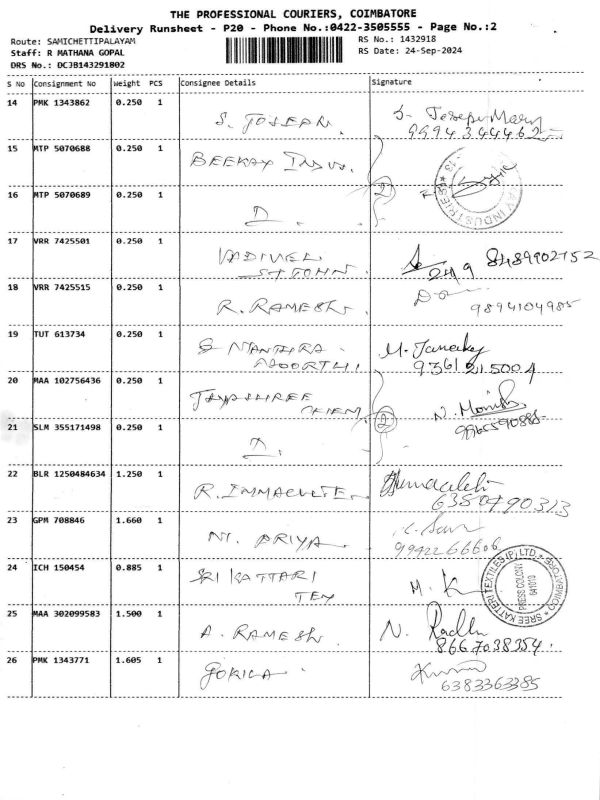 THE PROFESSIONAL COURIERS, COIMBATORE
Delivery Runsheet - P20 - Phone No.:0422-3505555 - Page No.:2
Route: SAMICHETTIPALAYAM
RS No.: 1432918
Staff: R MATHANA GOPAL
RS Date: 24-Sep-2024
DRS No.: DCJB143291802
S No Consignment No Weight PCS Consignee Details Signature
14 PMK 1343862 0.250 1 S. JOSEPH. S. Joseph Mary
9994344462
15 MTP 5070688 0.250 1 BEEKAY INDU.
16 MTP 5070689 0.250 1 D. 2
17 VRR 7425501 0.250 1 VADIVEL
ST JOHN. 24/9 8489902752
18 VRR 7425515 0.250 1 R. RAMESH.
9894104985
19 TUT 613734 0.250 1 S MANTHIRA
MOORTHI. M. Janaky
9361215004
20 MAA 102756436 0.250 1 JAYASHREE
CHEM. 2 N. Monish.
9965590885
21 SLM 355171498 0.250 1 D.
22 BLR 1250484634 1.250 1 R. IMMACULTE.
6350490313
23 GPM 708846 1.660 1 M. PRIYA.
9942266606
24 ICH 150454 0.885 1 SRI KATTARI
TEX M. K
SREE KATTERI TEXTILES (P) LTD.
PRESS COLONY
641019
COIMBATORE
25 MAA 302099583 1.500 1 A. RAMESH. N. Radha
8667038354.
26 PMK 1343771 1.605 1 GOKILA
6383363385